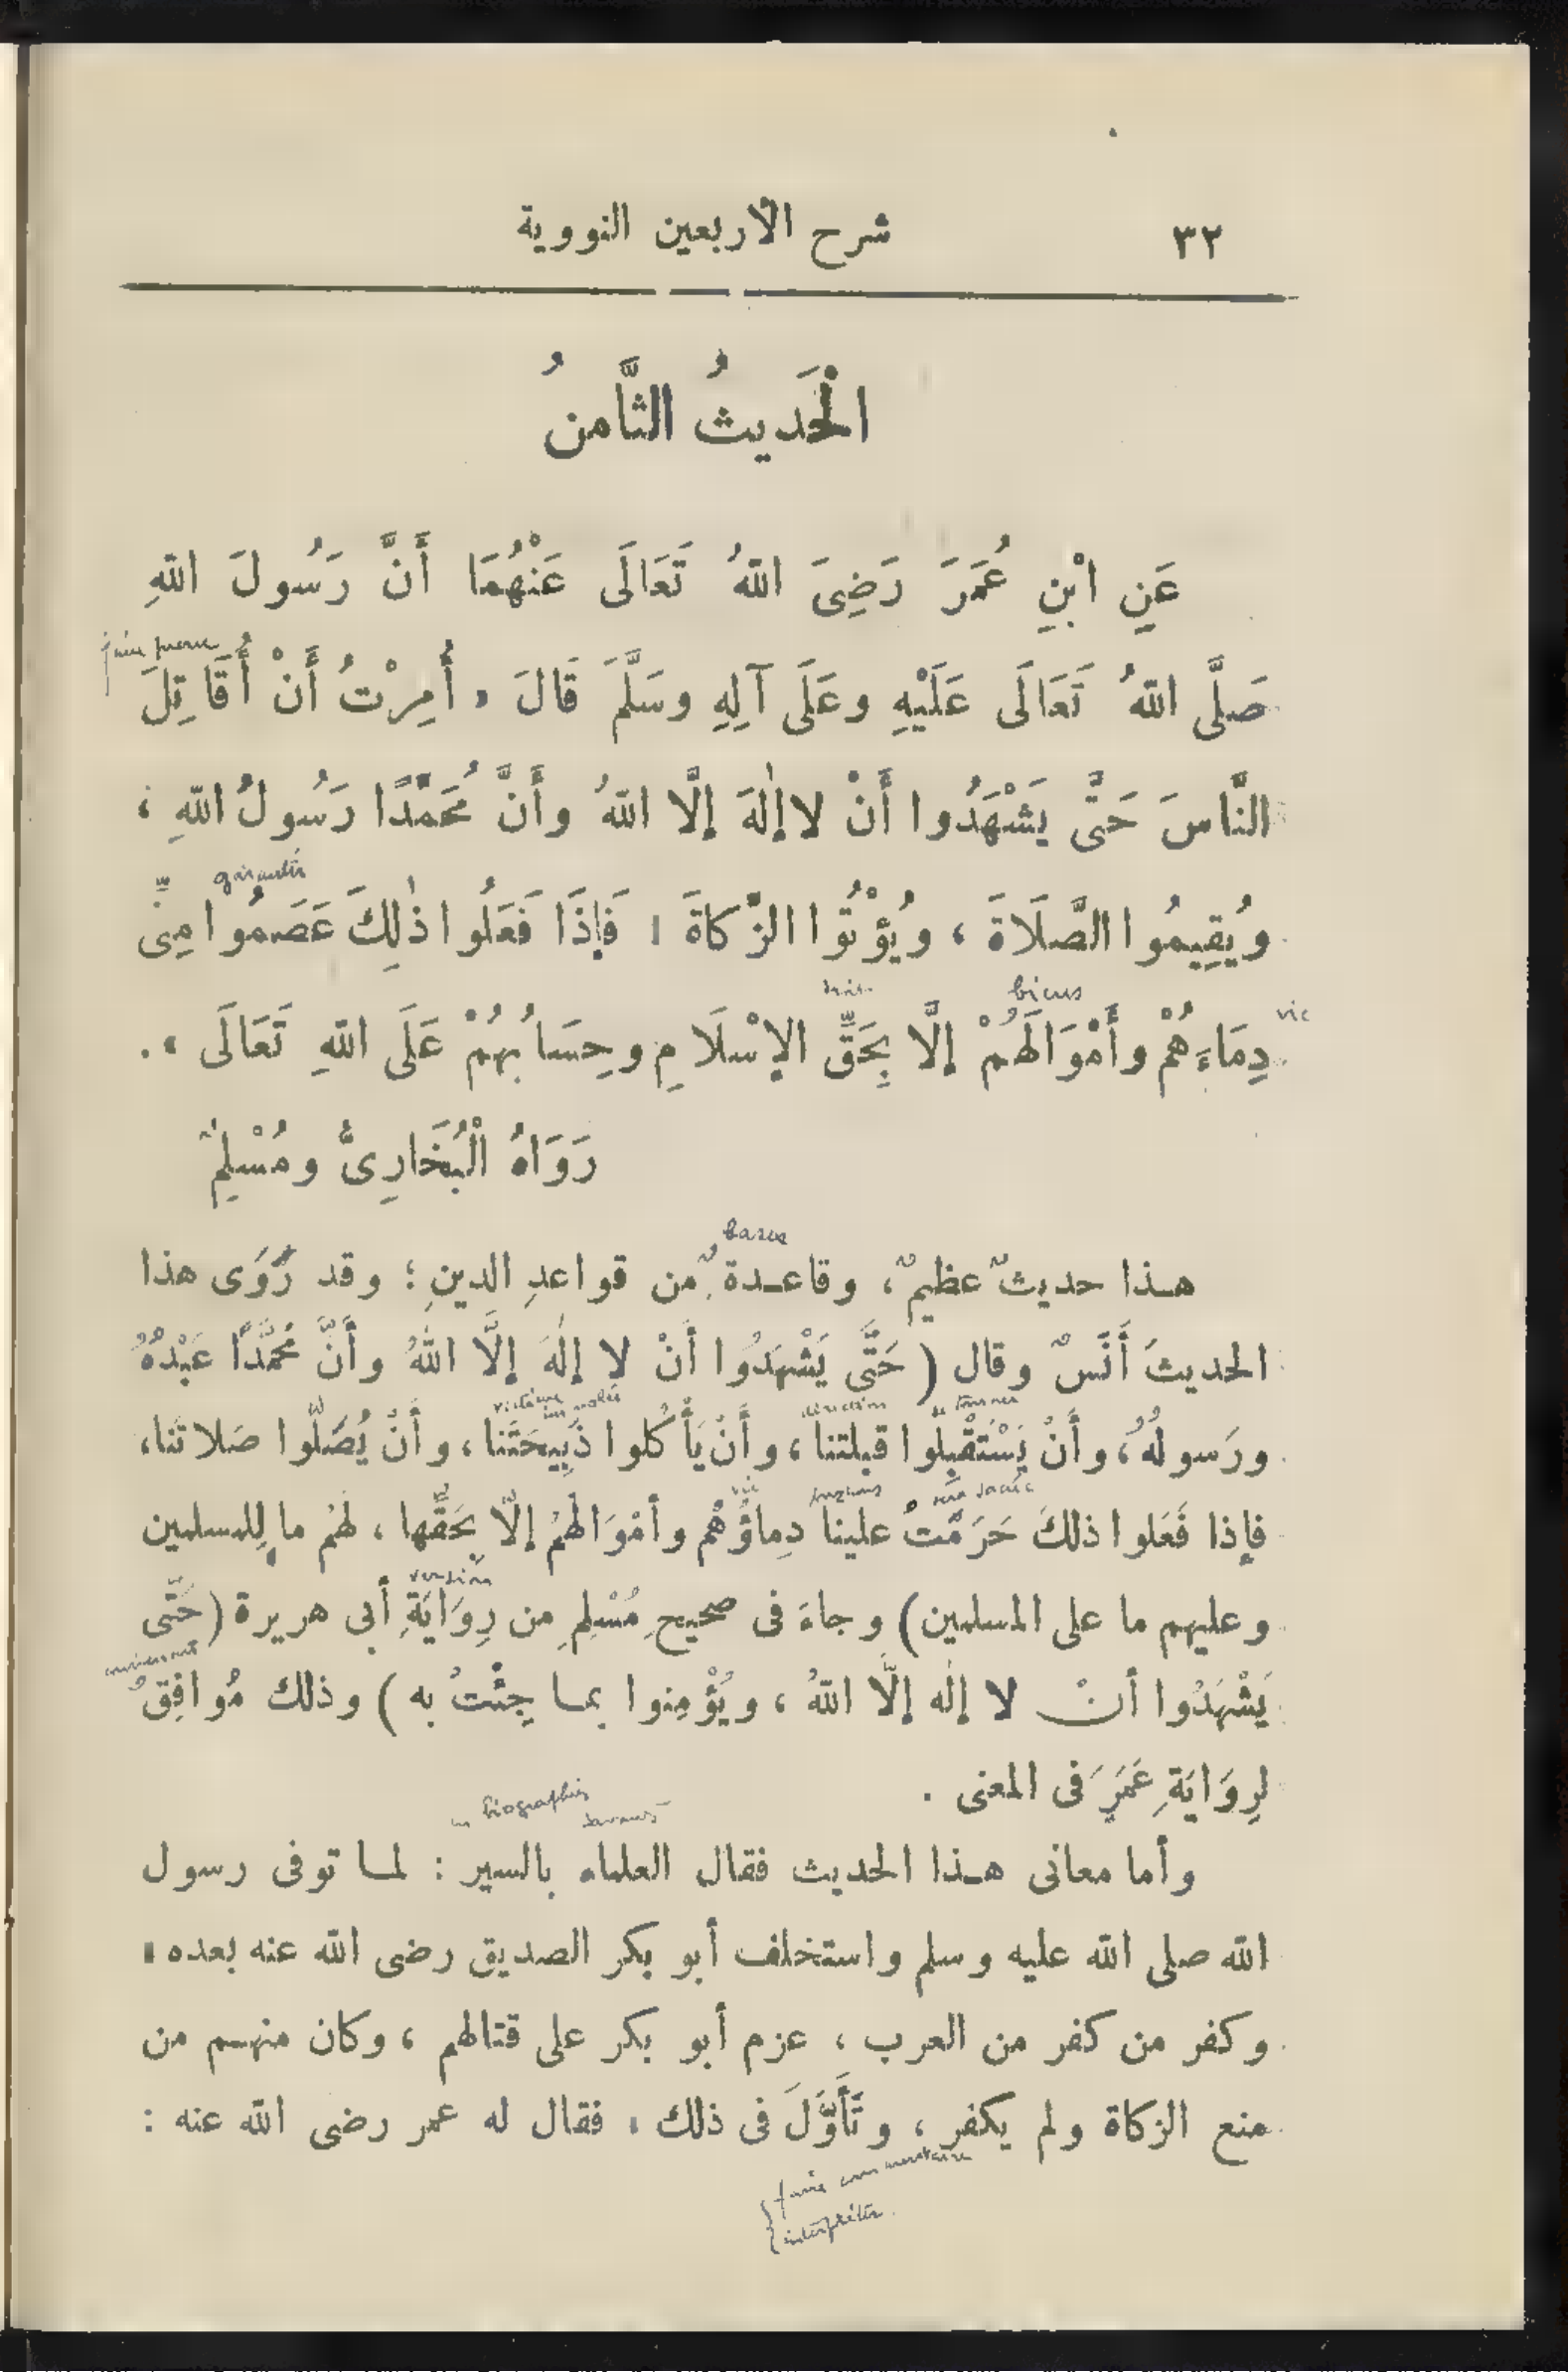 ٣٢ شرح الأربعين النووية
الْحَدِيثُ الثَّامنُ
عَنِ ابْنِ عُمَرَ رَضِىَ اللهُ تَعَالَى عَنْهُمَا أَنَّ رَسُولَ اللهِ
faire guerre
صَلَّى اللهُ تَعَالَى عَلَيْهِ وعَلَى آلِهِ وسَلَّمَ قَالَ « أُمِرْتُ أَنْ أُقَاتِلَ
النَّاسَ حَتَّى يَشْهَدُوا أَنْ لا إِلٰهَ إلَّا اللهُ وأَنَّ مُحَمَّدًا رَسُولُ اللهِ ،
garantir
ويُقِيمُوا الصَّلَاةَ ، ويُؤْتُوا الزَّكاةَ ، فَإِذَا فَعَلُوا ذٰلِكَ عَصَمُوا مِنِّى
biens
vie
دِمَاءَهُمْ وأَمْوَالَهُمْ إلَّا بِحَقِّ الإِسْلَامِ وحِسَابُهُمْ عَلَى اللهِ تَعَالَى » .
رَوَاهُ الْبُخَارِىُّ ومُسْلِمٌ
bases
هـذا حديثٌ عظيمٌ ، وقاعـدةٌ من قواعدِ الدينِ ؛ وقد رَوَى هذا
الحديثَ أَنَسٌ وقال ( حَتَّى يَشْهَدُوا أَنْ لا إلٰهَ إلَّا اللهُ وأَنَّ مُحَمَّدًا عَبْدُهُ
se tourner direction victime immolée
ورَسولُهُ ، وأَنْ يَسْتَقْبِلُوا قبلتنا ، وأَنْ يَأْكُلوا ذَبِيحَتَنا ، وأَنْ يُصَلُّوا صَلاتَنا ،
vie
فإذا فَعَلوا ذلكَ حَرَمَتْ علينا دِماؤُهُم وأمْوَالهُمْ إلّا بِحَقِّها ، لهُم ما لِلمسلمين
version
وعليهم ما على المسلمين ) وجاءَ فى صحيحِ مُسْلِمٍ من رِوَايَةِ أبى هريرة ( حَتَّى
يَشْهَدُوا أنْ لا إلٰه إلَّا اللهُ ، ويُؤْمِنوا بمـا جِئْتُ به ) وذلك مُوافِقٌ
لِرِوَايَةِ عُمَرَ فى المعنى .
biographies savants
وأما معانى هـذا الحديث فقال العلماء بالسير : لمـا توفى رسول
الله صلى الله عليه وسلم واستخلف أبو بكر الصديق رضى الله عنه بعده ،
وكفر من كفر من العرب ، عزم أبو بكر على قتالهم ، وكان منهـم من
منع الزكاة ولم يكفر ، وتَأَوَّلَ فى ذلك ، فقال له عمر رضى الله عنه :
faire commentaire
interpréter